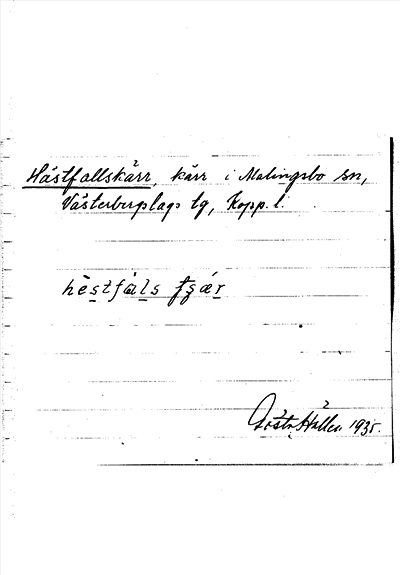 Hästfallskärr, kärr i Malingsbo sn,
Västerbergslags tg, Kopp. l.
hèstfàls fʂǽr
Gösta Hallen 1935.